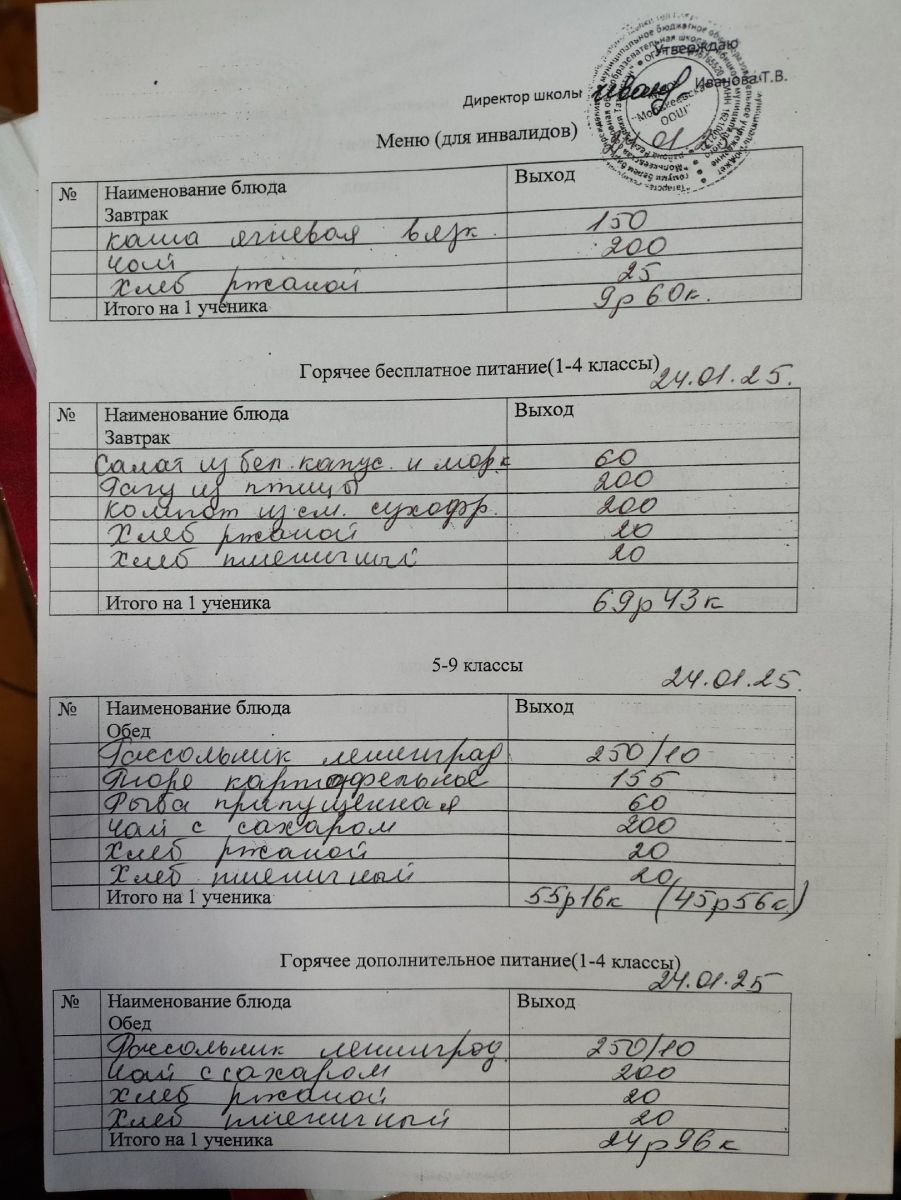 Утверждаю
Директор школы Иванова Т.В.
"Молькеевская
ООШ"
Меню (для инвалидов)
№ Наименование блюда Выход
Завтрак
каша ячневая вязк. 150
чай 200
Хлеб ржаной 25
Итого на 1 ученика 9р 60к.
Горячее бесплатное питание(1-4 классы) 24.01.25.
№ Наименование блюда Выход
Завтрак
Салат из бел. капус. и морк 60
Рагу из птицы 200
Компот из см. сухофр. 200
Хлеб ржаной 20
Хлеб пшеничный 20
Итого на 1 ученика 69р 43к
5-9 классы 24.01.25.
№ Наименование блюда Выход
Обед
Рассольник ленинград 250/10
Пюре картофельное 155
Рыба припущенная 60
Чай с сахаром 200
Хлеб ржаной 20
Хлеб пшеничный 20
Итого на 1 ученика 55р16к (45р56к)
Горячее дополнительное питание(1-4 классы) 24.01.25
№ Наименование блюда Выход
Обед
Рассольник ленинград. 250/10
Чай с сахаром 200
Хлеб ржаной 20
Хлеб пшеничный 20
Итого на 1 ученика 24р96к